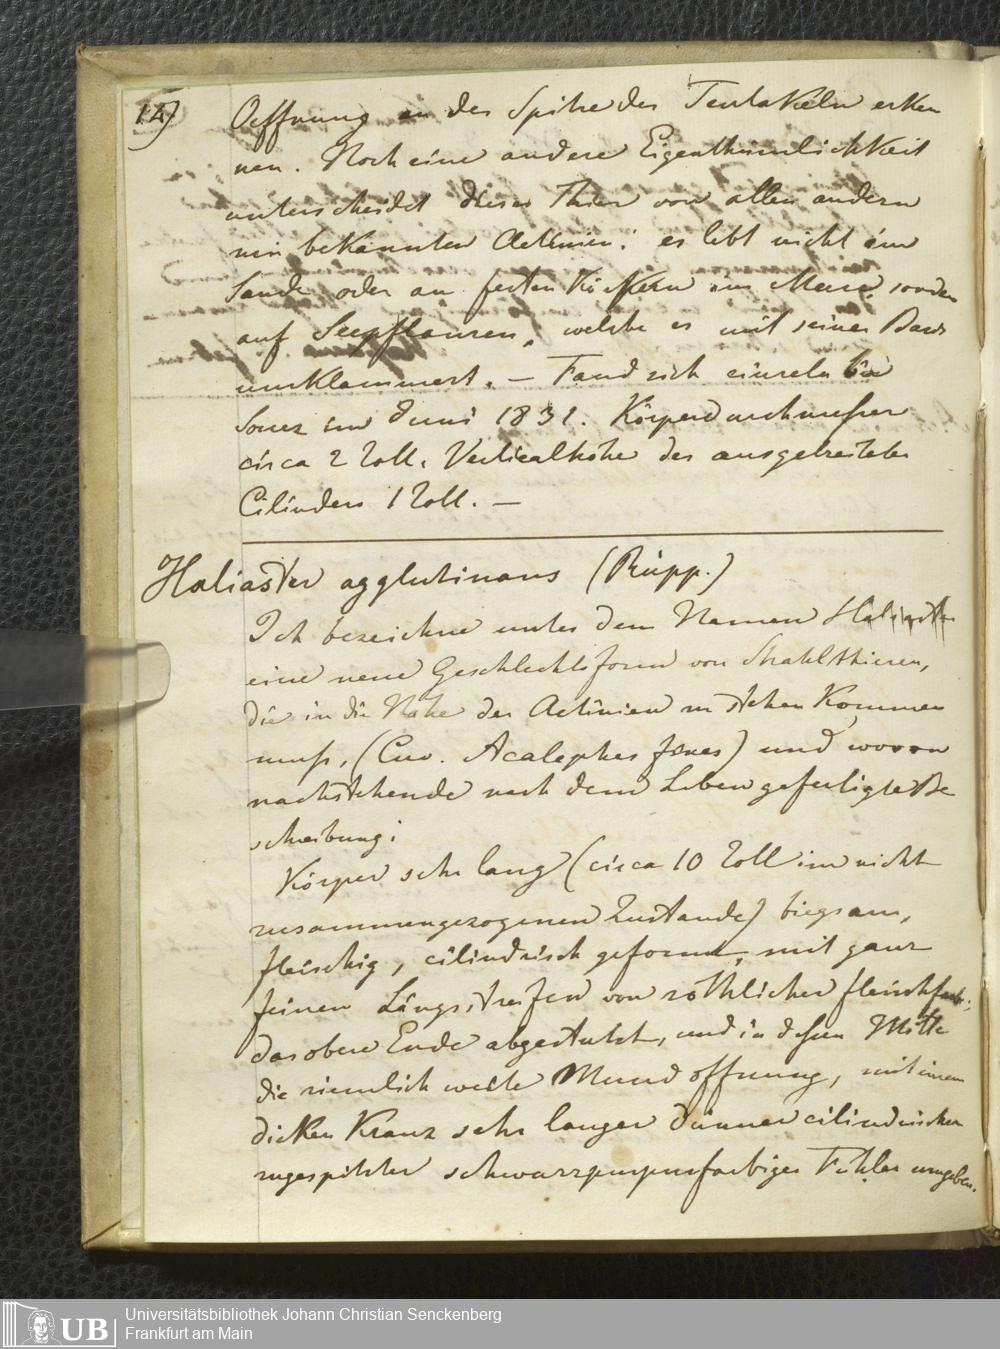 12)
Oeffnung an der Spitze der Tentakeln erken
nen. Noch eine andere Eigenthümlichkeit
unterscheidet dieses Thier von allen andern
mir bekannten Actinien: es lebt nicht im
Sande oder an festen Körpern im Meere, sondern
auf Seepflanzen, welche es mit seiner Basis
umklammert. — Fand sich einzeln bei
Souez im Juni 1831. Körperdurchmesser
circa 2 Zoll. Verticalhöhe des ausgebreiteten
Cilinders 1 Zoll. —
Haliaster agglutinans (Rüpp.)
Ich bezeichne unter dem Namen Haliaster
eine neue Geschlechtsform von Strahlthieren,
die in die Nähe der Actinien zu stehen kommen
muß, (Cuv. Acalephes fixes) und wovon
nachstehende nach dem Leben gefertigte Be
schreibung:
Körper sehr lang (circa 10 Zoll im nicht
zusammengezogenen Zustande) biegsam,
fleischig, cilindrisch geformt, mit ganz
feinen Längsstreifen von röthlicher fleischfarb;
das obere Ende abgestutzt, und in dessen Mitte
die ziemlich weite Mundöffnung, mit einem
dicken Kranz sehr langer dünner cilindrischer
zugespitzter schwarzpurpurfarbiger Fühler umgeben.
Universitätsbibliothek Johann Christian Senckenberg
Frankfurt am Main
UB